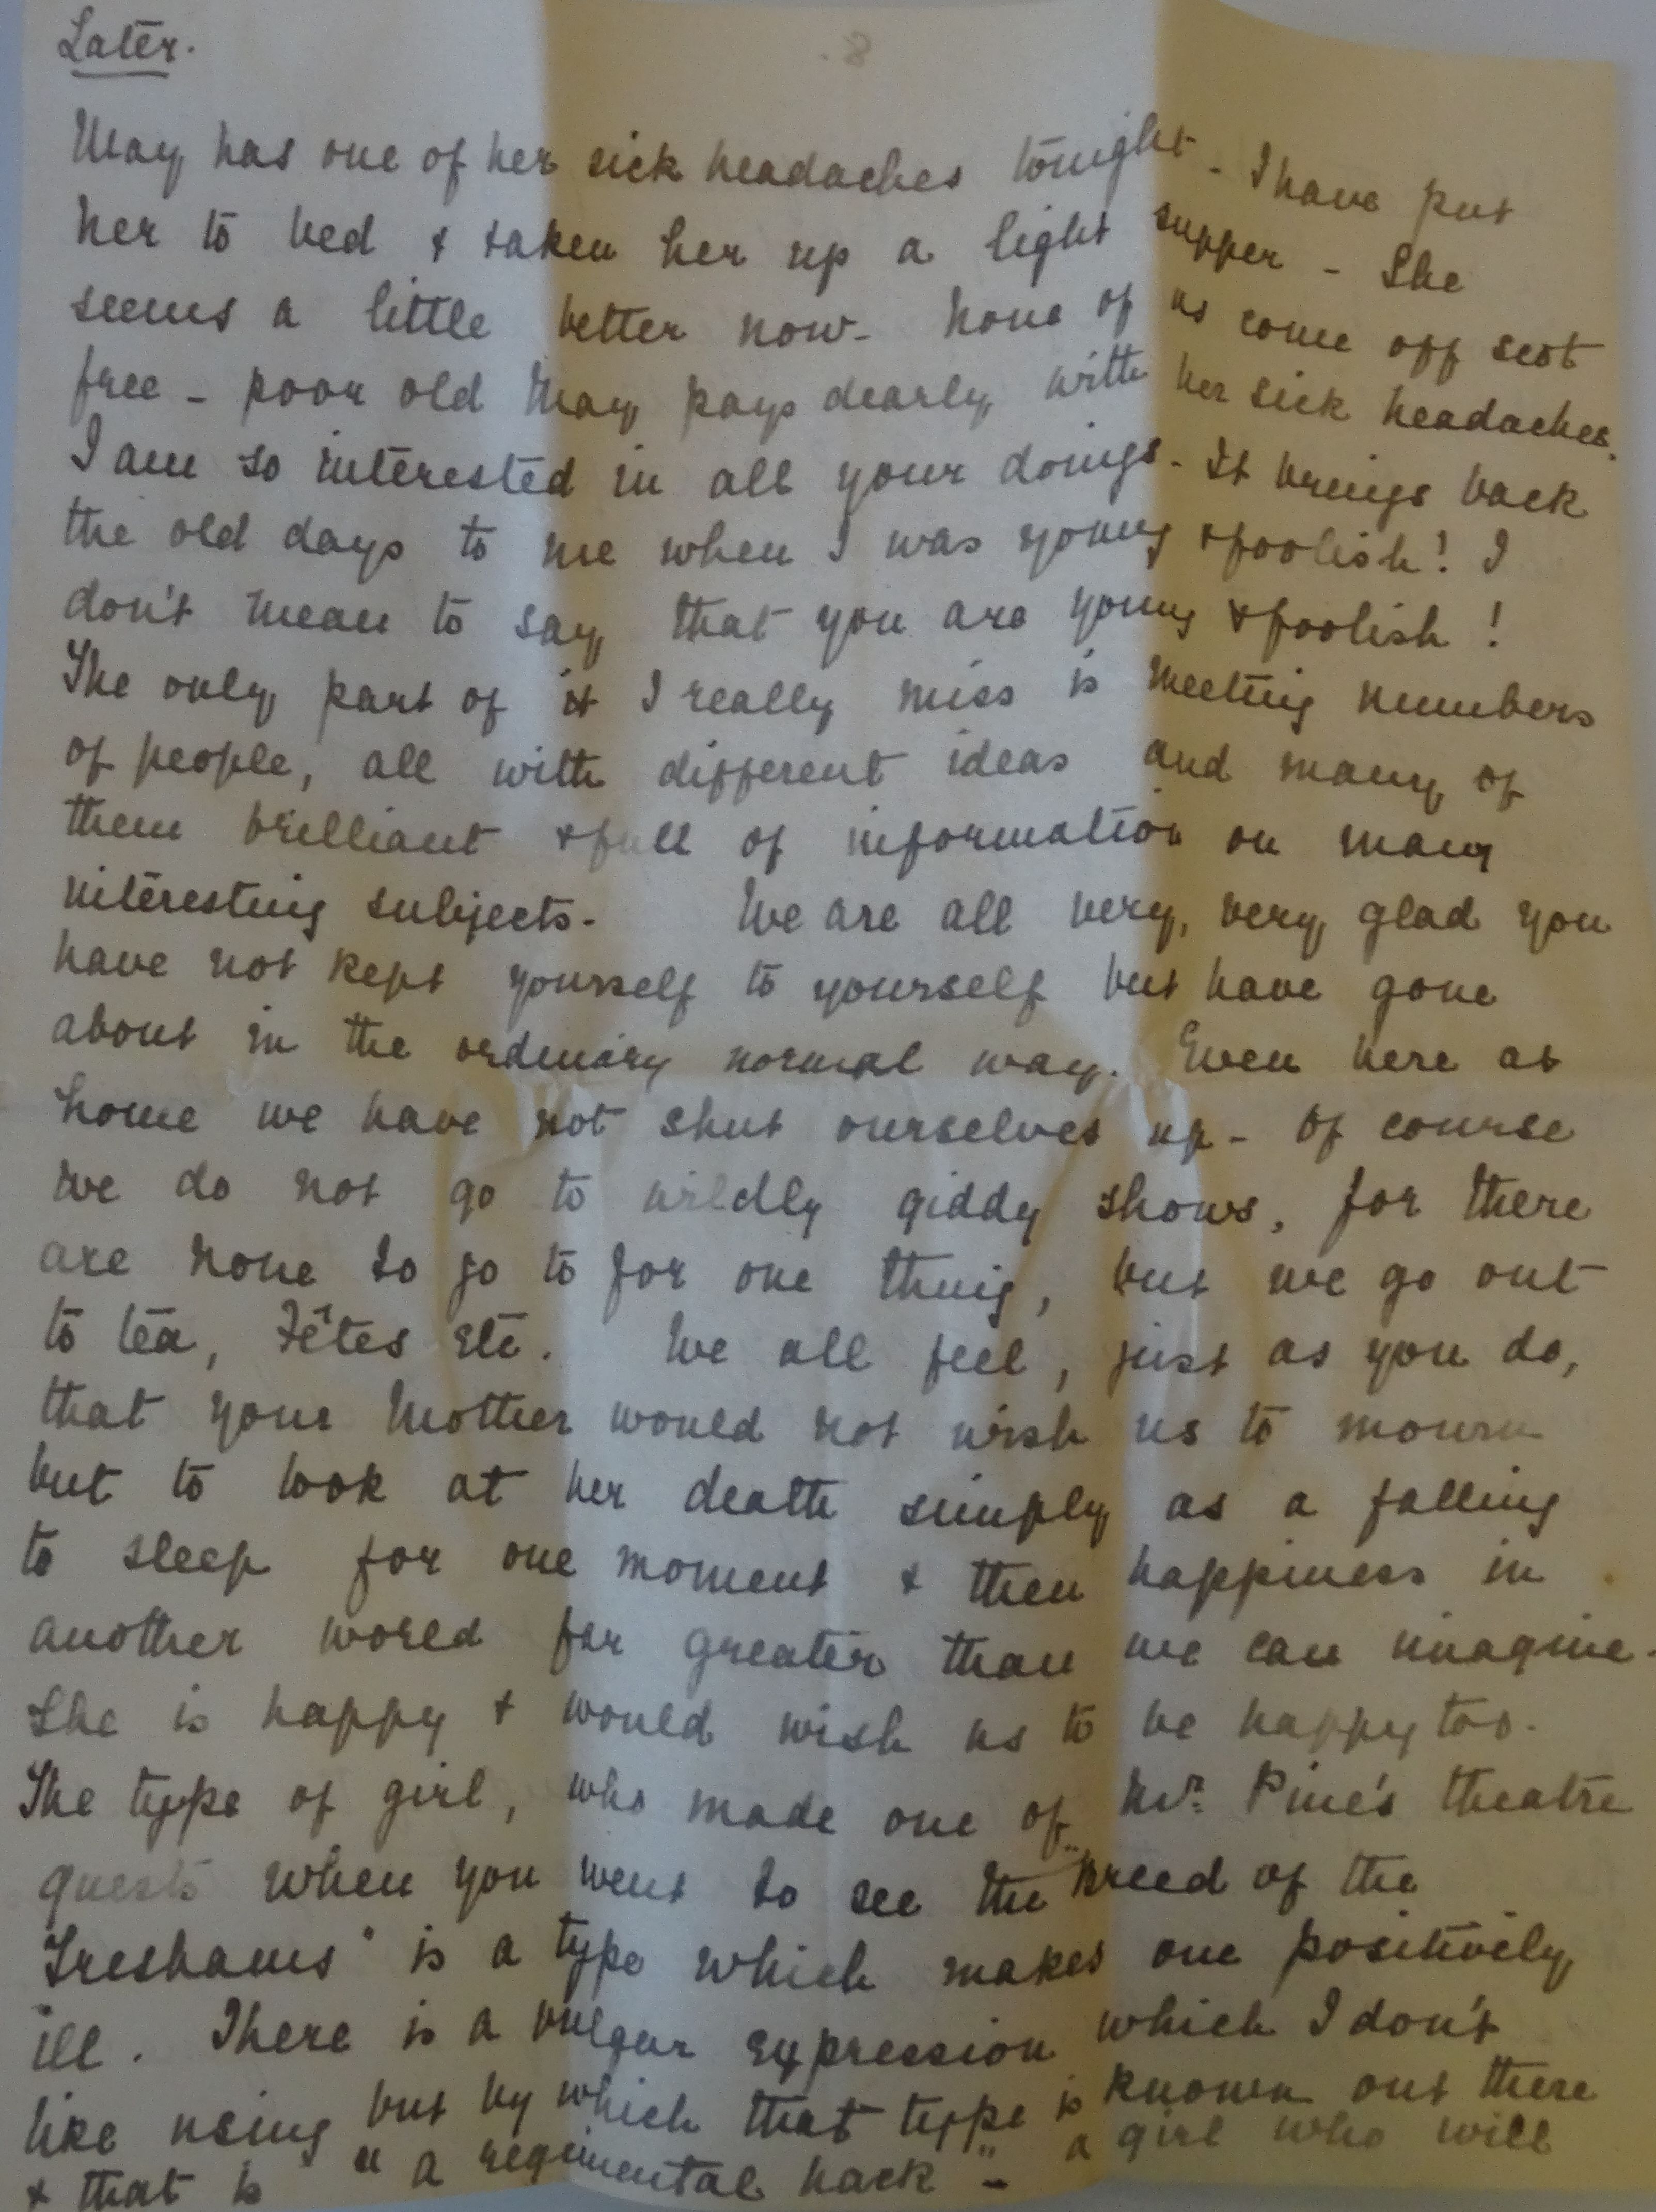 8.
Later.
May has one of her sick headaches tonight - I have put
her to bed & taken her up a light supper - She
seems a little better now - None of us come off scot
free - poor old May pays dearly with her sick headaches.
I am so interested in all your doings - It brings back
the old days to me when I was young & foolish! I
don't mean to say that you are young & foolish!
The only part of it I really miss is meeting numbers
of people, all with different ideas and many of
them brilliant & full of information on many
interesting subjects - We are all very, very glad you
have not kept yourself to yourself but have gone
about in the ordinary normal way. Even here at
home we have not shut ourselves up - Of course
we do not go to wildly giddy shows, for there
are none to go to for one thing, but we go out
to tea, Fêtes etc. We all feel, just as you do,
that your Mother would not wish us to mourn
but to look at her death simply as a falling
to sleep for one moment & then happiness in
another world far greater than we can imagine -
She is happy & would wish us to be happy too.
The type of girl, who made one of Mr. Pine's theatre
guests when you went to see the "Breed of the
Treshams" is a type which makes one positively
ill. There is a vulgar expression which I don't
like using but by which that type is known out there
& that is "a regimental hack" - a girl who will